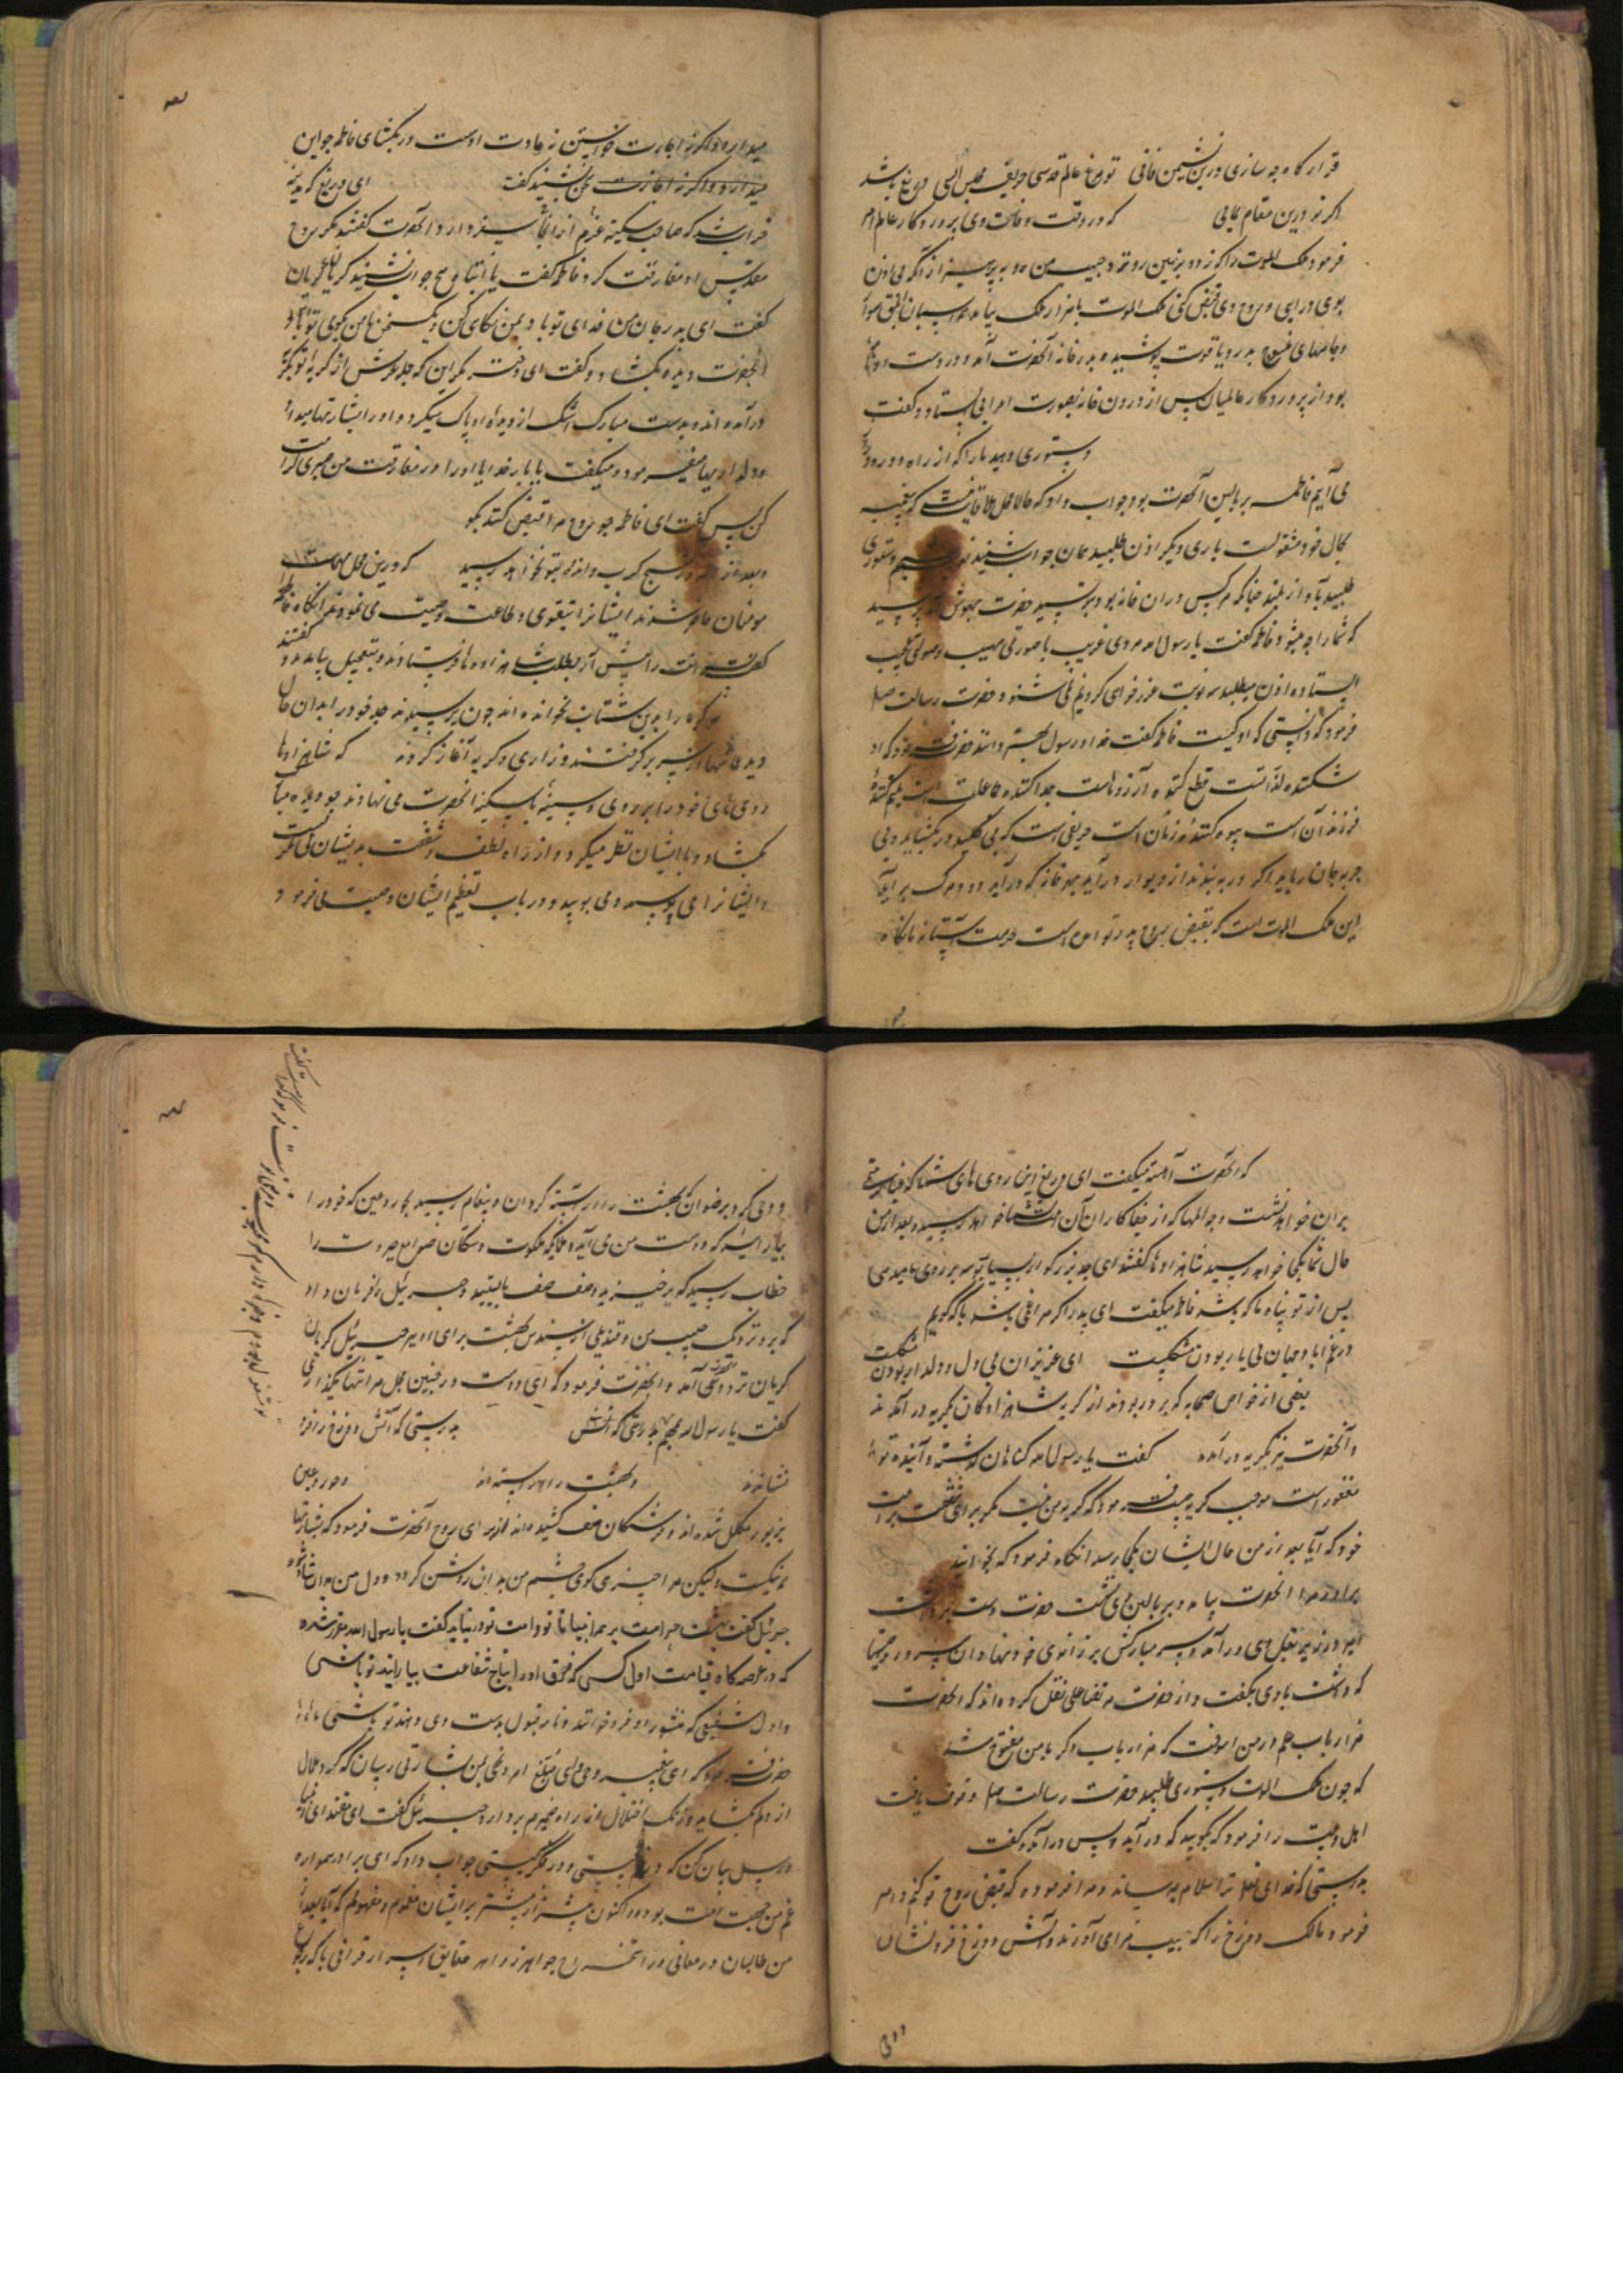 قرارگاه چه سازی درین نشیمن فانی تو مرغ عالم قدسی حریف مجلس انسی دریغ باشد
اگر تو درین مقام بمانی که در وقت وفات وی پروردگار عالم امر
فرمود ملک الموت را که زود بزمین رو نزد حبیب من و بپرهیز از آنکه بی اذن
وی درایی و روح وی قبض کنی ملک الموت با هزار ملک بیامد بر اسبان ابلق سوار
و جامهای منسوج بدر و یاقوت پوشیده بدر خانه آنحضرت آمد و در دست او
بود از پروردگار عالمیان پس از درون خانه بصورت اعرابی بستاد و گفت
دستوری دهید ما را که از راه دور
می آیم فاطمه بر بالین آنحضرت بود جواب داد که حالا محل ملاقات نیست که پیغمبر
بحال خود مشغولست باری دیگر اذن طلبید همان جواب شنید دستوری
طلبید بآواز بلند چنانکه هر کس در آن خانه بود بترسید حضرت بهوش آمد پرسید
که شما را چه میشود فاطمه گفت یا رسول الله مردی غریب با صورتی مهیب و صولتی عجیب
ایستاده اذن میطلبد سه نوبت عذرخواهی کردیم نمی شنود حضرت رسالت صلعم
فرمود که دانستی که او کیست فاطمه گفت خدا و رسول بهتر دانند حضرت فرمود که او
شکننده لذاتست قطع کننده آرزوهاست جدا کننده جماعات است یتیم کننده
فرزندان است بیوه کننده زنان است حریفی است که بی کلید در بگشاید و بی
حربه جان رباید اگر در به بندند از دیوار درآید بهر خانه که درآید دود مرگ برآید
این ملک الموت است که بقبض روح پدر تو آمده است حرمت آستانه ما نگاه
میدارد و اگر نه اجازت خواستن نه عادت اوست در بگشای فاطمه چو این
سخن بشنید گفت ای دریغ که مدینه
خراب شد که صاحب سکینه عزم از آنجا سفر دارد آنحضرت گفتند مگر روح
مقدس او مفارقت کرد فاطمه گفت یا ابتاه هیچ جواب نشنید گریان گریان
گفت ای پدر جان من فدای تو باد بمن نگاهی کن و یک سخن با من بگوی
آنحضرت دیده بگشاد و گفت ای دختر مگری این که حمله عرش از گریه تو بگریه
درآمده اند و بدست مبارک اشک از دیده او پاک میکرد و او را بشارتها میداد
و دلداریها میفرمود و میگفت یا بار خدایا او را در مفارقت من صبری کرامت
کن پس گفت ای فاطمه چو روح مرا قبض کنند بگو
و بعد از این هیچ کرب و اندوه بتو نخواهد رسید که درین محل مهمات
مومنان حاضر شدند ایشانرا بتقوی و طاعت وصیت می نمود
ما را بدین شتاب نخوانده اند چون برسیدند جد خود را بدان حال
دیدند عمامها از سر برگرفتند و زاری و گریه آغاز کردند که شاهزادها
رویهای خود را بر روی و سینه با سکینه آنحضرت می نهادند چو دیده مبارک
بگشاد و با ایشان نظر میکرد و از راه لطف و شفقت بدیشان می نگریست
و ایشانرا می بوسید و می بویید و در باب تعظیم ایشان وصیت می فرمود
که آنحضرت آهسته میگفت ای دریغ این روی های شما که غبار
بران خواهد نشست و چه المها که از جفاکاران امت بشما خواهد رسید و بعد از من
حال شما بکجا خواهد رسید شاهزادها گفتند ای جد بزرگوار
پس از تو پناه ما که باشد فاطمه میگفت ای پدر اگر مرا غمی باشد با که گویم
در غم آباد جهان بی یار بودن مشکلست ای عزیزان بی دل و دلدار بودن مشکلست
بعضی از خواص صحابه که بر در بودند از گریه شاهزادگان بگریه درآمدند
و آنحضرت نیز بگریه درآمد گفت یا رسول الله گناهان گذشته و آینده تو
مغفور است موجب گریه چیست فرمود که گریه من نیست مگر برای شفقت بر امت
خود که آیا بعد از من حال ایشان بکجا رسد آنگاه فرمود که بخوانید
برادر مرا آنحضرت بیامد و بر بالین وی نشست حضرت دست برداشت
امیر در زیر بغل وی درآمد و سر مبارکش بر زانوی خود نهاد و آن سرور وصیتها
که داشت با وی بگفت و از حضرت مرتضا علی نقل کرده اند که آنحضرت
هزار باب علم در من آموخت که هزار باب دیگر با من مفتوح شد
که چون ملک الموت دستوری طلبید حضرت رسالت صلعم وقوف یافت
اهل بیت را فرمود که بگویید که درآید پس درآمد و گفت
بدرستی که خدای تعالی ترا سلام میرساند و مرا فرموده که قبض روح تو کنم و امر
فرمود مالک دوزخ را که حبیب مرا می آورند آتش دوزخ فرونشان
و وحی کرد برضوان که بهشت را آراسته گردان و پیغام رسید بحور و عین که خود را
بیارایید که دوست من می آید و ملایکه ملکوت و ساکنان صوامع جبروت را
خطاب رسید که برخیزید و صف صف بایستید و جبرئیل را فرمان داد
که برو نزدیک حبیب من و مندیلی از سندس بهشت برای او ببر جبرئیل گریان
گریان نزد وی آمد و آنحضرت فرمود که ای دوست در چنین محل مرا تنها میگذاری
گفت یا رسول الله بدرستی که آتش دوزخ را فرو
نشاندند و بهشت را آراسته اند و حور و عین
بزیور مکلل شده اند و فرشتگان صف کشیده اند از برای روح آنحضرت فرمود که بشارتها
نیکیست ولیکن مرا چیزی گوی که چشم من بدان روشن گردد و دل من بدان شاد شود
جبرئیل گفت بهشت حرامست بر همه انبیا تا تو و امت تو درنیاید گفت یا رسول الله مقرر شده
که در عرصه گاه قیامت اول کسی که فرق او را بتاج شفاعت بیارایند تو باشی
و اول شفیعی که منشور او فروخوانند و نامه قبول بدست وی دهند تو باشی
حضرت فرمود که ای پیغمبر وحی و ای مبلغ امر و نهی بمن بشارتی رسان که گرد ملال
از دلم بگشاید و زنگ اختلال از راه ضمیرم بردارد جبرئیل گفت ای مقتدای انبیا
و رسل بیان کن که در غم چیستی و در فکر کیستی جواب داد که ای برادر همواره
غم من جهت امت بوده و اکنون بیشتر از پیشتر برایشان مغموم و مهمومم که آیا بعد از
من طالبان در معانی در استخراج جواهر زواهر حقایق اسرار قرآنی با که رجوع